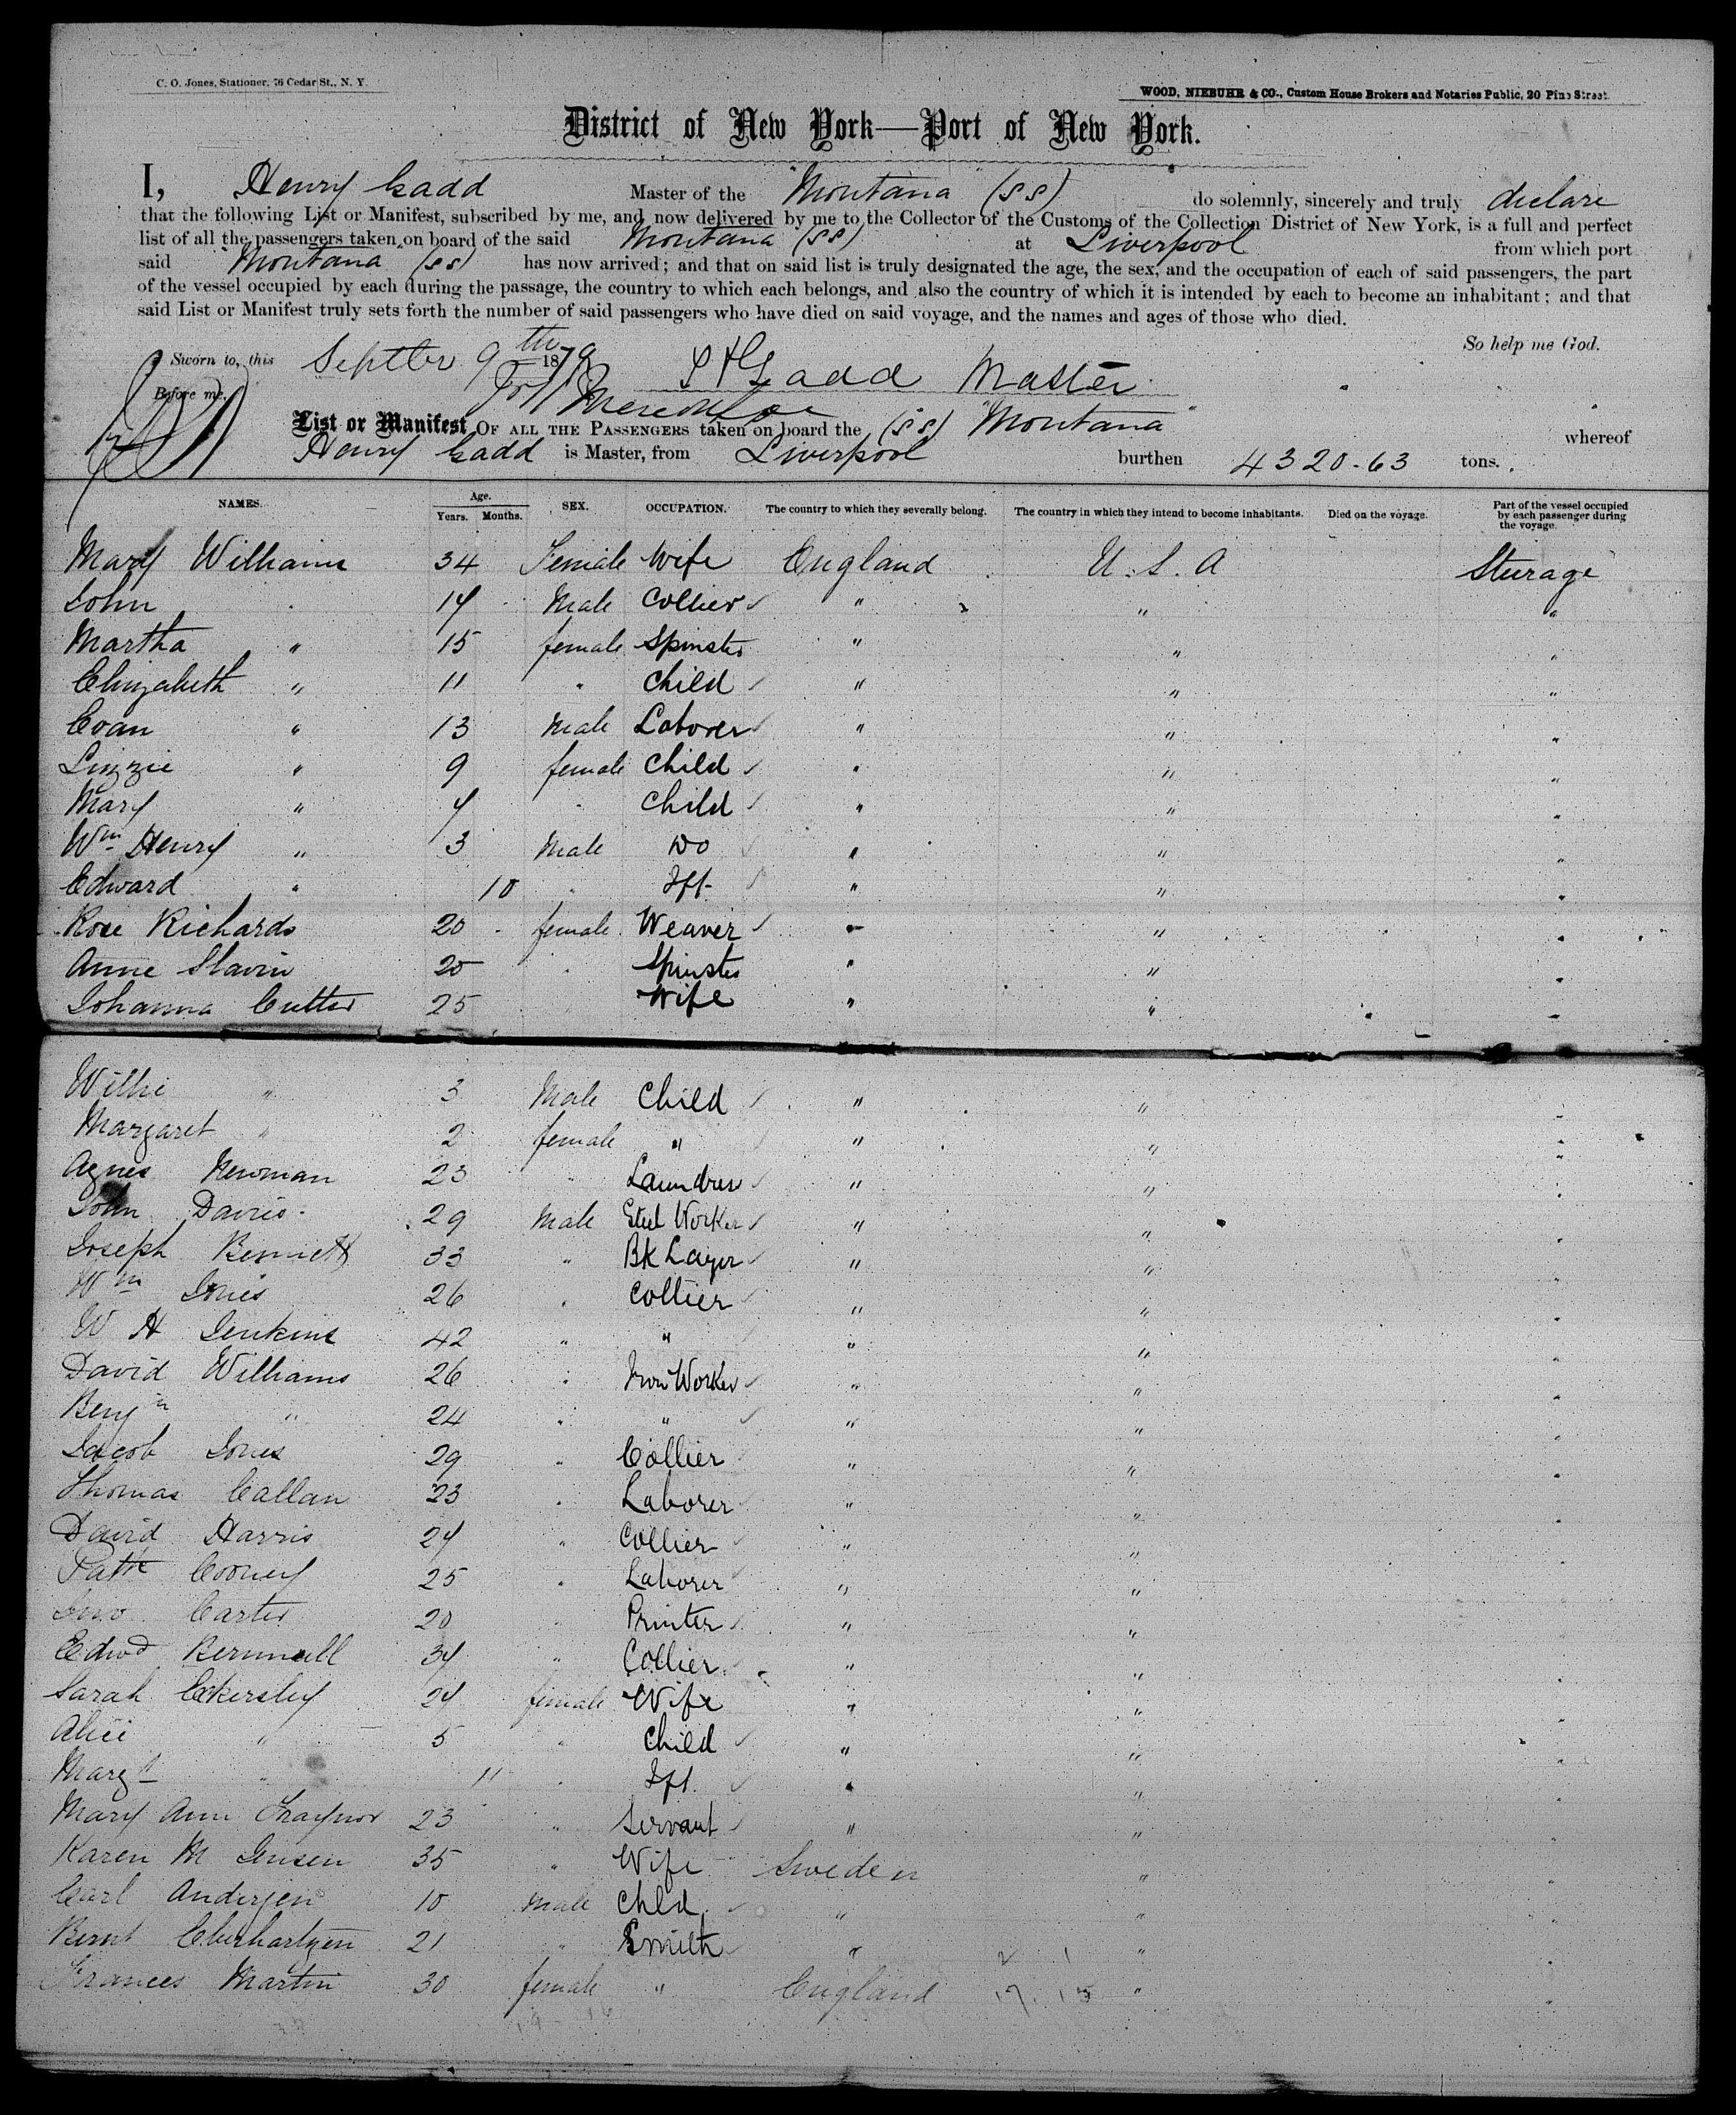 C. O. Jones, Stationer, 76 Cedar St., N. Y.
WOOD, NIEBUHR & CO., Custom House Brokers and Notaries Public, 20 Pine Street.
District of New York—Port of New York.
I, Henry Gadd Master of the "Montana" (SS) do solemnly, sincerely and truly declare
that the following List or Manifest, subscribed by me, and now delivered by me to the Collector of the Customs of the Collection District of New York, is a full and perfect
list of all the passengers taken on board of the said Montana (SS) at Liverpool from which port
said "Montana" (SS) has now arrived; and that on said list is truly designated the age, the sex, and the occupation of each of said passengers, the part
of the vessel occupied by each during the passage, the country to which each belongs, and also the country of which it is intended by each to become an inhabitant; and that
said List or Manifest truly sets forth the number of said passengers who have died on said voyage, and the names and ages of those who died.
So help me God.
Sworn to, this Septber 9th 1879 Gadd Master
Before me,
List or Manifest OF ALL THE PASSENGERS taken on board the (SS) "Montana" whereof
Henry Gadd is Master, from Liverpool burthen 4320-63 tons.
NAMES. Age. Years. Months. SEX. OCCUPATION. The country to which they severally belong. The country in which they intend to become inhabitants. Died on the voyage. Part of the vessel occupied by each passenger during the voyage.
Mary Williams 34 Female Wife England U.S.A Steerage
John 14 Male Collier " " "
Martha " 15 female Spinster " " "
Elizabeth " 11 " Child " " "
Evan " 13 Male Laborer " " "
Lizzie " 9 female Child " " "
Mary " 4 " Child " " "
Wm Henry " 3 Male Do " " "
Edward " 10 " Ift " " "
Rose Richards 20 female Weaver " " "
Anne Slavin 20 " Spinster " " "
Johanna Cutter 25 " Wife " " "
Willie " 3 Male Child " " "
Margaret " 2 female " " " "
Agnes Newman 23 " Laundress " " "
John Davies 29 Male Steel Worker " " "
Joseph Bennett 33 " Bk Layer " " "
Wm Jones 26 " Collier " " "
W H Jenkins 42 " " " " "
David Williams 26 " Iron Worker " " "
Benjn " 24 " " " " "
Jacob Jones 29 " Collier " " "
Thomas Callan 23 " Laborer " " "
David Harris 24 " Collier " " "
Patk Cooney 25 " Laborer " " "
Jno Carter 20 " Printer " " "
Edwd 34 " Collier " " "
Sarah Eckersley 24 female Wife " " "
Alice " 5 " Child " " "
Margt " 11 " Ift. " " "
Mary Ann Traynor 23 " Servant " " "
Karen M Jensen 35 " Wife Sweden " "
Carl Andersen 10 male Chld " " "
Bernt 21 " Smith " " "
Frances Martin 30 female " England "